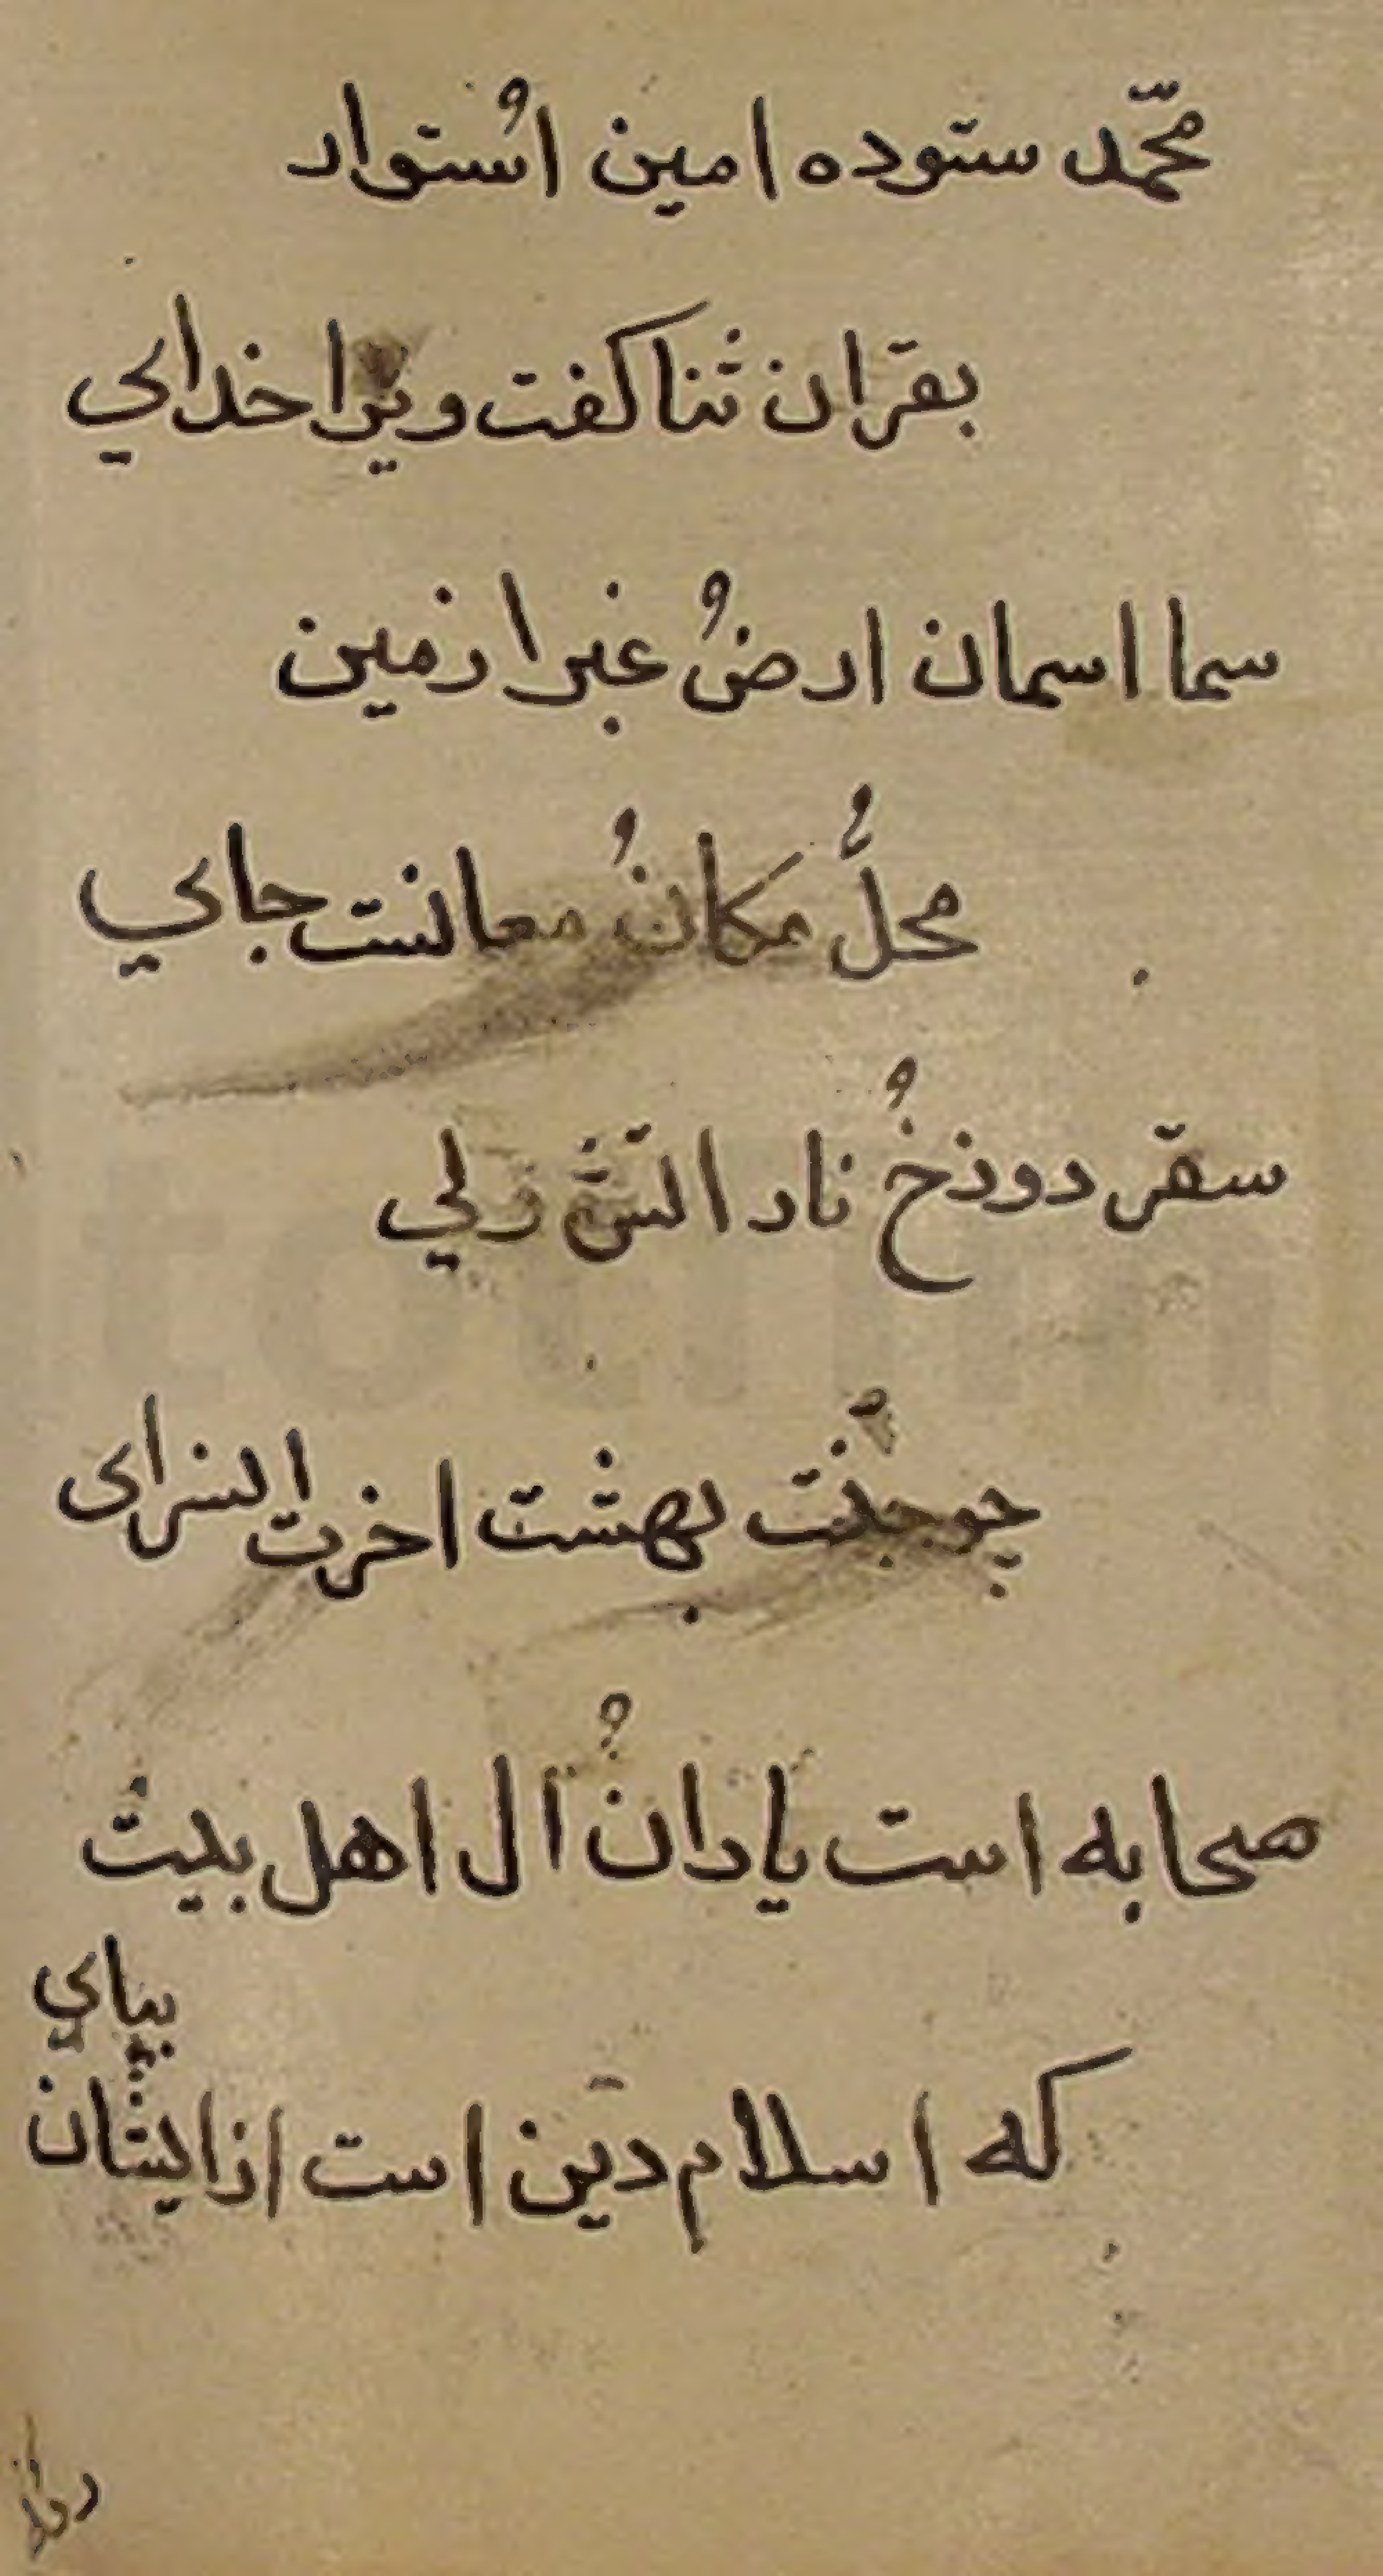 محمّد ستوده امین اُستوار
بقران ثنا کفت ویرا خدای
سما اسمان ارضُ غبرا زمین
محلُّ مکانُ معانست جای
سقر دوزخُ نار اتش ولی
چو جنّت بهشت اخرت انسرای
صحابه است یارانُ آل اهل بیت
بپای
که اسلام دین است از ایشان